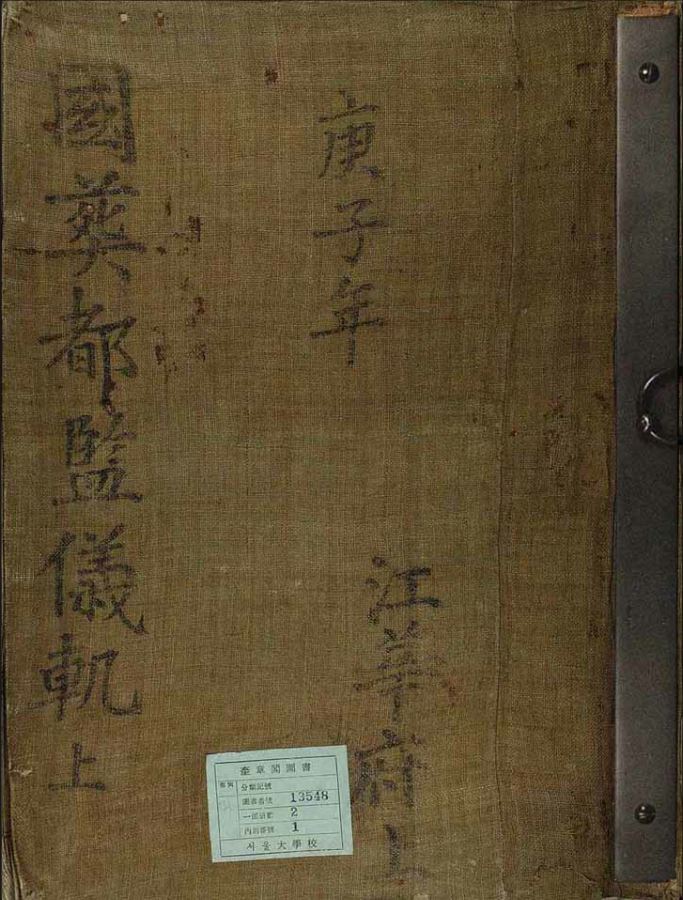 庚子年
江華府上
國葬都監儀軌 上
奎章閣圖書
分類記號
圖書番號 13548
一部冊數 2
內冊番號 1
서울大學校